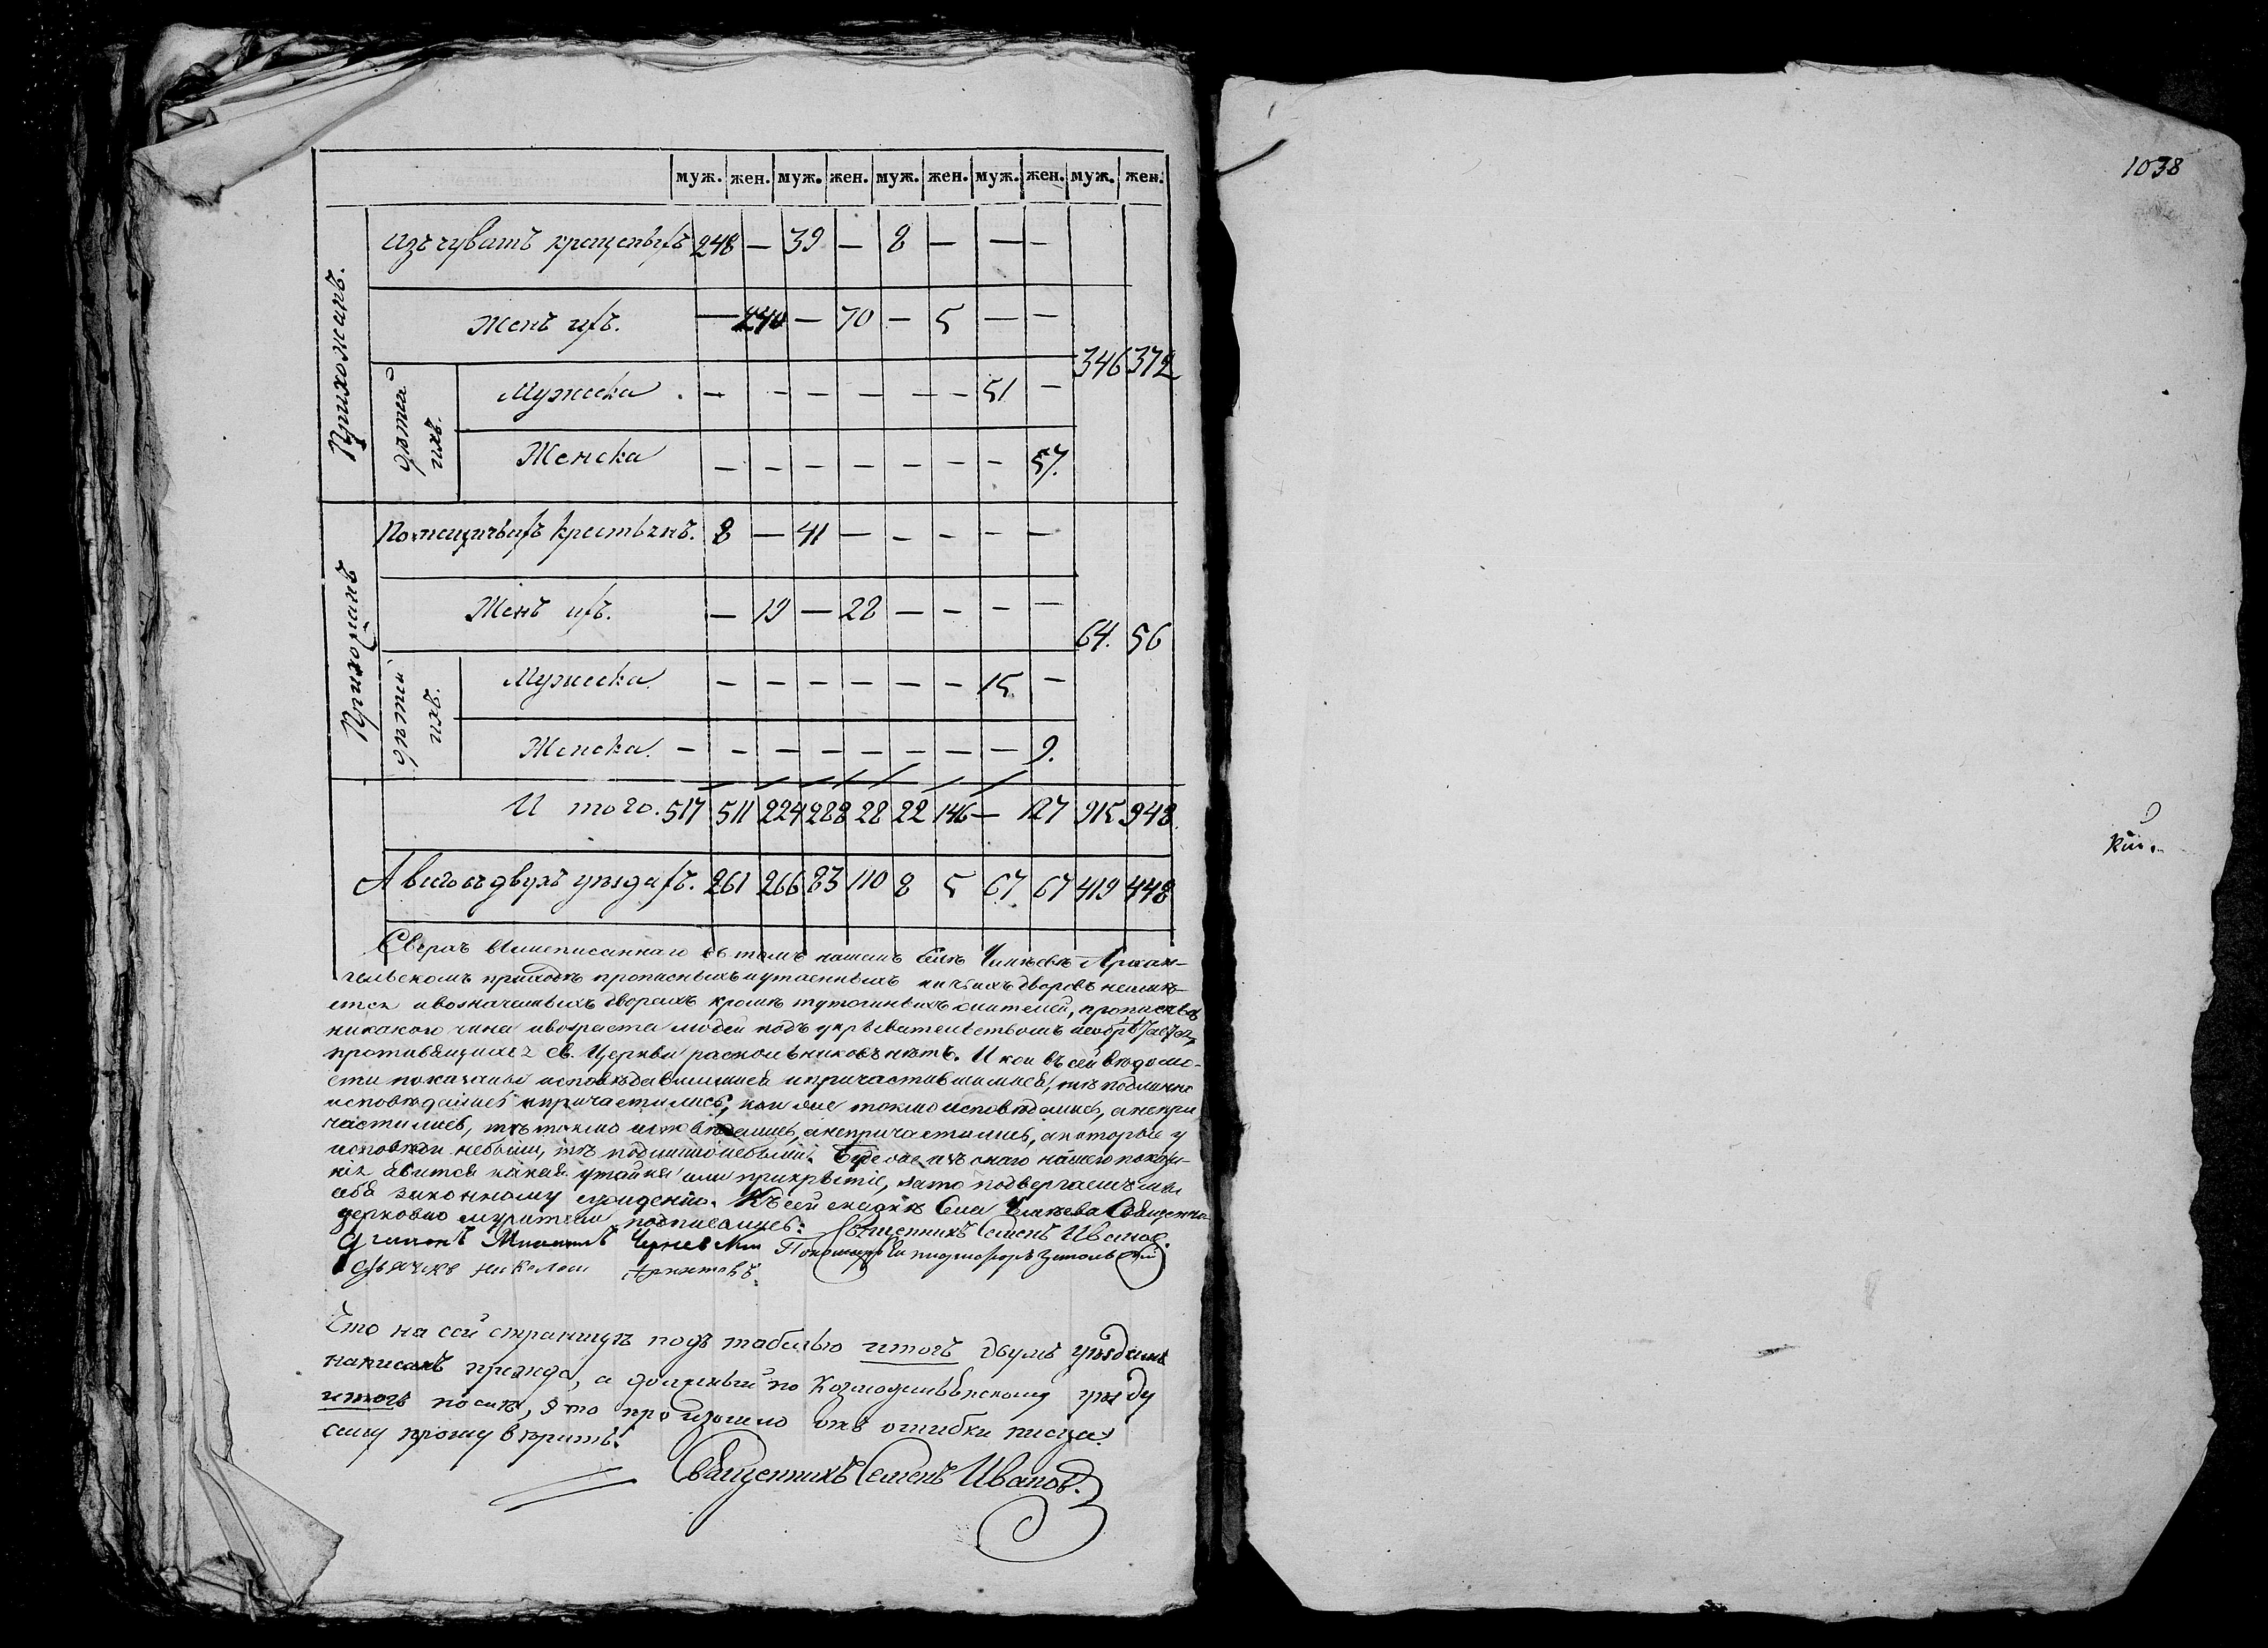 1038
муж. жен. муж. жен. муж. жен. муж. жен. муж. жен.
Прихожанъ.
изъ чувашъ крещеныхъ 248 — 39 — 8 — — —
Женъ ихъ. — 240 — 70 — 5 — —
346 372
дѣтей ихъ.
Мужеска . — — — — — — 51 —
Женска — — — — — — — 57.
Прихожанъ
Помещичьихъ крестьянъ. 8 — 41 — — — — —
Женъ ихъ. — 19 — 28 — — — —
64. 56
дѣтей ихъ.
Мужеска. — — — — — — 15 —
Женска. — — — — — — — — 9.
И того. 517 511 224 288 28 22 146 — 127 915 948.
А всего въ двухъ уѣздахъ. 261 266 83 110 8 5 67 67 419 448
Сверхъ вышеписаннаго въ томъ нашемъ селѣ Архан-
гельскомъ приходѣ прописныхъ и утаенныхъ ничьихъ дворовъ неимѣ-
ется и возначенныхъ дворахъ кромѣ жителей, прописныхъ
никакого чина ивозраста людей подъ укрывательствомъ
противящихся св. Церкви раскольниковъ нѣтъ. И кои въ сей вѣдомо-
сти показаны исповѣдавшимися и причастившимися, тѣ подлинно
исповѣдались и причастились, кои же токмо исповѣдались, а непри-
частились, тѣ токмо исповѣдались, анепричастились, а которые у
исповѣди небыли, тѣ подлинно небыли. Буде же изъ онаго нашего показа-
нія явится какая утайка или прикрытіе, зато подвергаемъ
себя законному сужденію. Къ сей сказкѣ Села Священно
церковно служители подписались: Священникъ Семенъ Иванов.
Діаконъ Михаилъ Пономарь
Дьячекъ Николай
Что на сей страницѣ подъ табелью итогъ двумъ уѣздамъ
написанъ прежде, а должный по Козмодемьянскому уѣзду
итогъ послѣ, это произошло отъ ошибки писца.
сему прошу вѣрить.
Священникъ Семенъ Иванов.
кій.